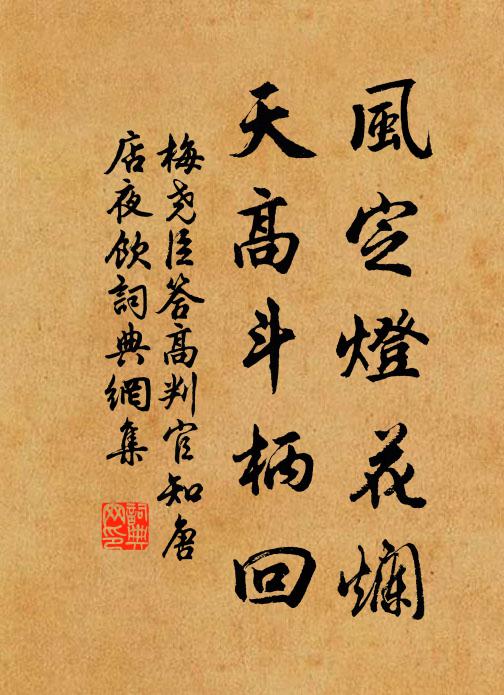 風定燈花爛
天高斗柄回
梅尭臣答高判官知唐
店夜飲詞典網集
詞典
网印